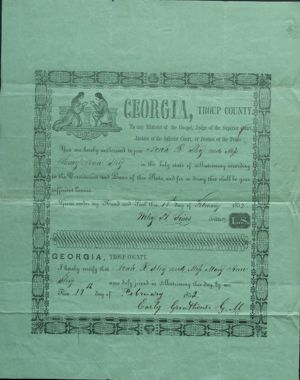 GEORGIA, TROUP COUNTY.
To any Minister of the Gospel, Judge of the Superior Court,
Justice of the Inferior Court, or Justice of the Peace:
You are hereby authorized to join Noah R and Miss
Mary Ann in the holy state of Matrimony according
to the Constitution and Laws of this State, and for so doing this shall be your
sufficient License.
Given under my Hand and Seal this day of February 185
Ordinary L.S.
GEORGIA, TROUP COUNTY
I hereby certify that Noah R and Miss Mary Ann
were duly joined in Matrimony this day by me
This day of February 185